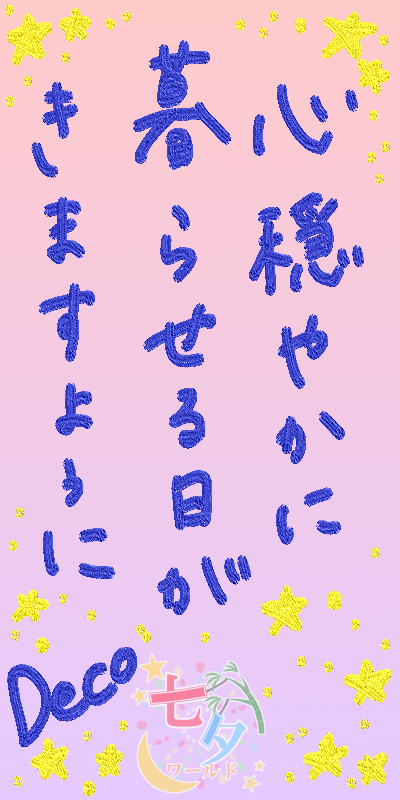 心穏やかに
暮らせる日が
きますように
Deco
七夕
ワールド